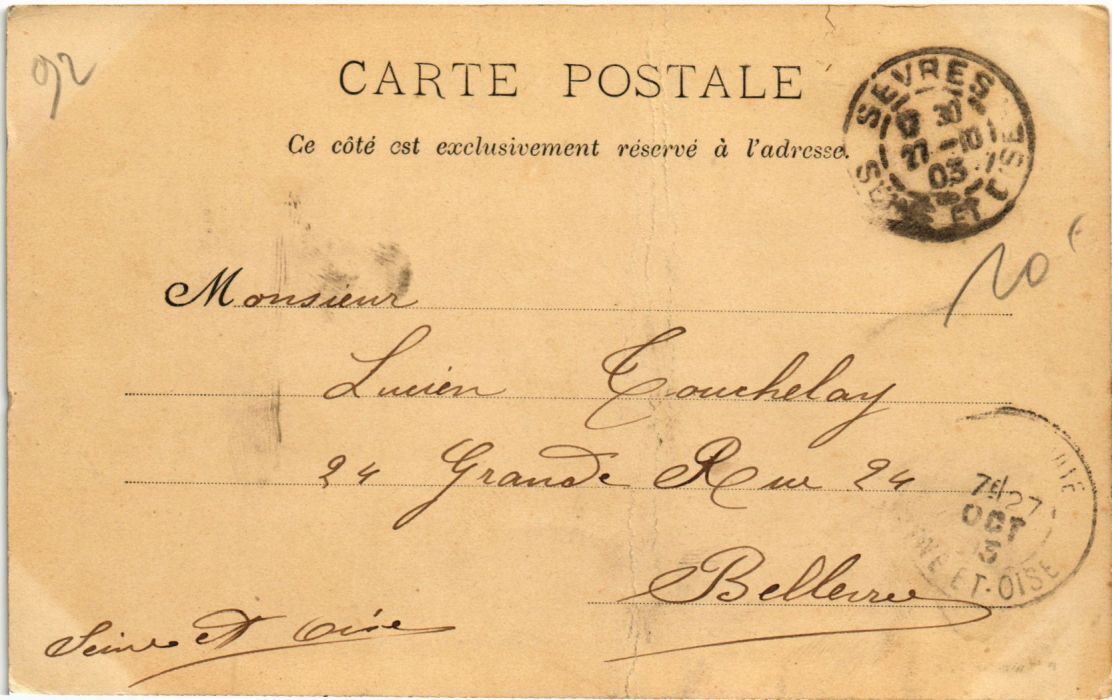 92
CARTE POSTALE
Ce côté est exclusivement réservé à l'adresse.
SEVRES
30
27 - 10
03
SEINE ET OISE
10
Monsieur
Lucien Touchelay
24 Grande Rue 24
Bellevue
Seine et Oise
7E 27
OCT
3
SEINE-ET-OISE